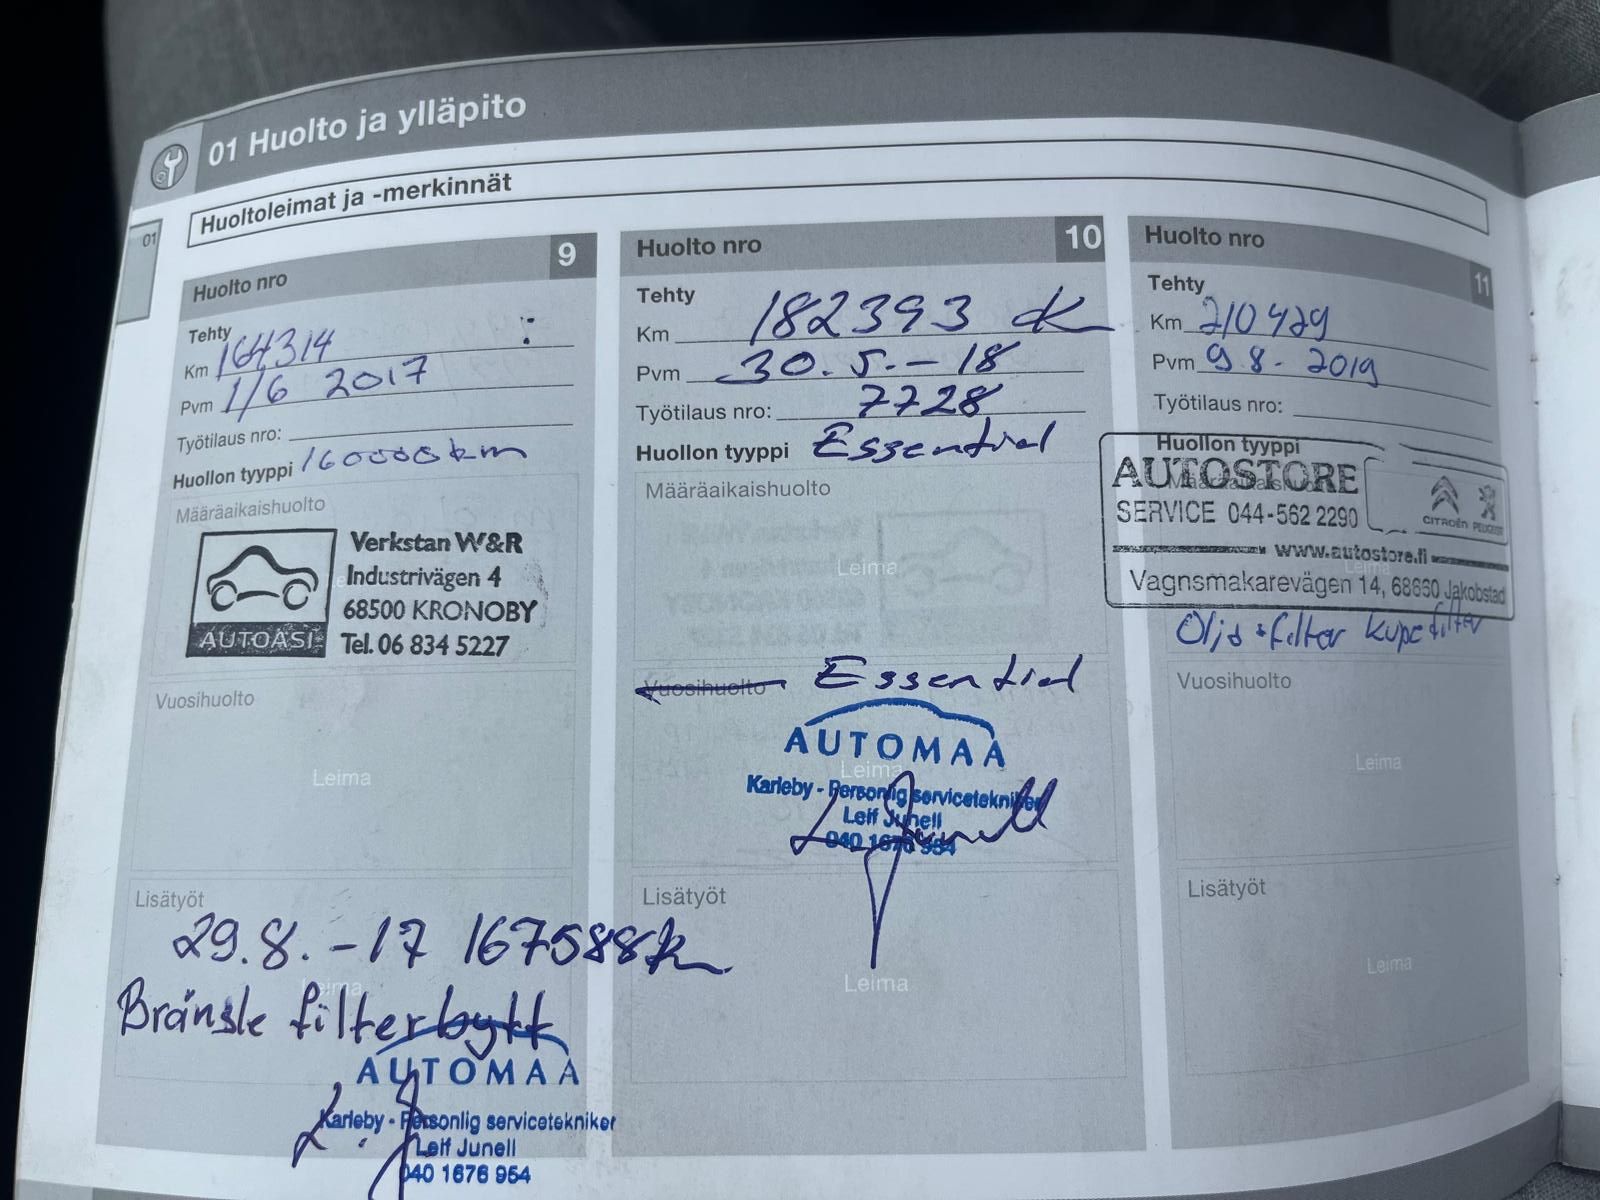 01 Huolto ja ylläpito
Huoltoleimat ja -merkinnät
01
Huolto nro 9
Tehty
Km 164314
Pvm 1/6 2017
Työtilaus nro:
Huollon tyyppi 160000 km
Määräaikaishuolto
AUTOASI
Verkstan W&R
Industrivägen 4
68500 KRONOBY
Tel. 06 834 5227
Vuosihuolto
Leima
Lisätyöt
29.8.-17 167588k
Leima
Bränsle filterbytt
AUTOMAA
Karleby - Personlig servicetekniker
Leif Junell
040 1676 954
Huolto nro 10
Tehty
Km 182393
Pvm 30.5.-18
Työtilaus nro: 7728
Huollon tyyppi Essential
Määräaikaishuolto
Leima
Vuosihuolto Essential
AUTOMAA
Leima
Karleby - Personlig servicetekniker
Leif Junell
040 1676 954
Lisätyöt
Leima
Huolto nro 11
Tehty
Km 210429
Pvm 9.8.2019
Työtilaus nro:
Huollon tyyppi
AUTOSTORE
SERVICE 044-562 2290
CITROËN PEUGEOT
www.autostore.fi
Leima
Vagnsmakarevägen 14, 68660 Jakobstad
Olja + filter kupefilter
Vuosihuolto
Leima
Lisätyöt
Leima